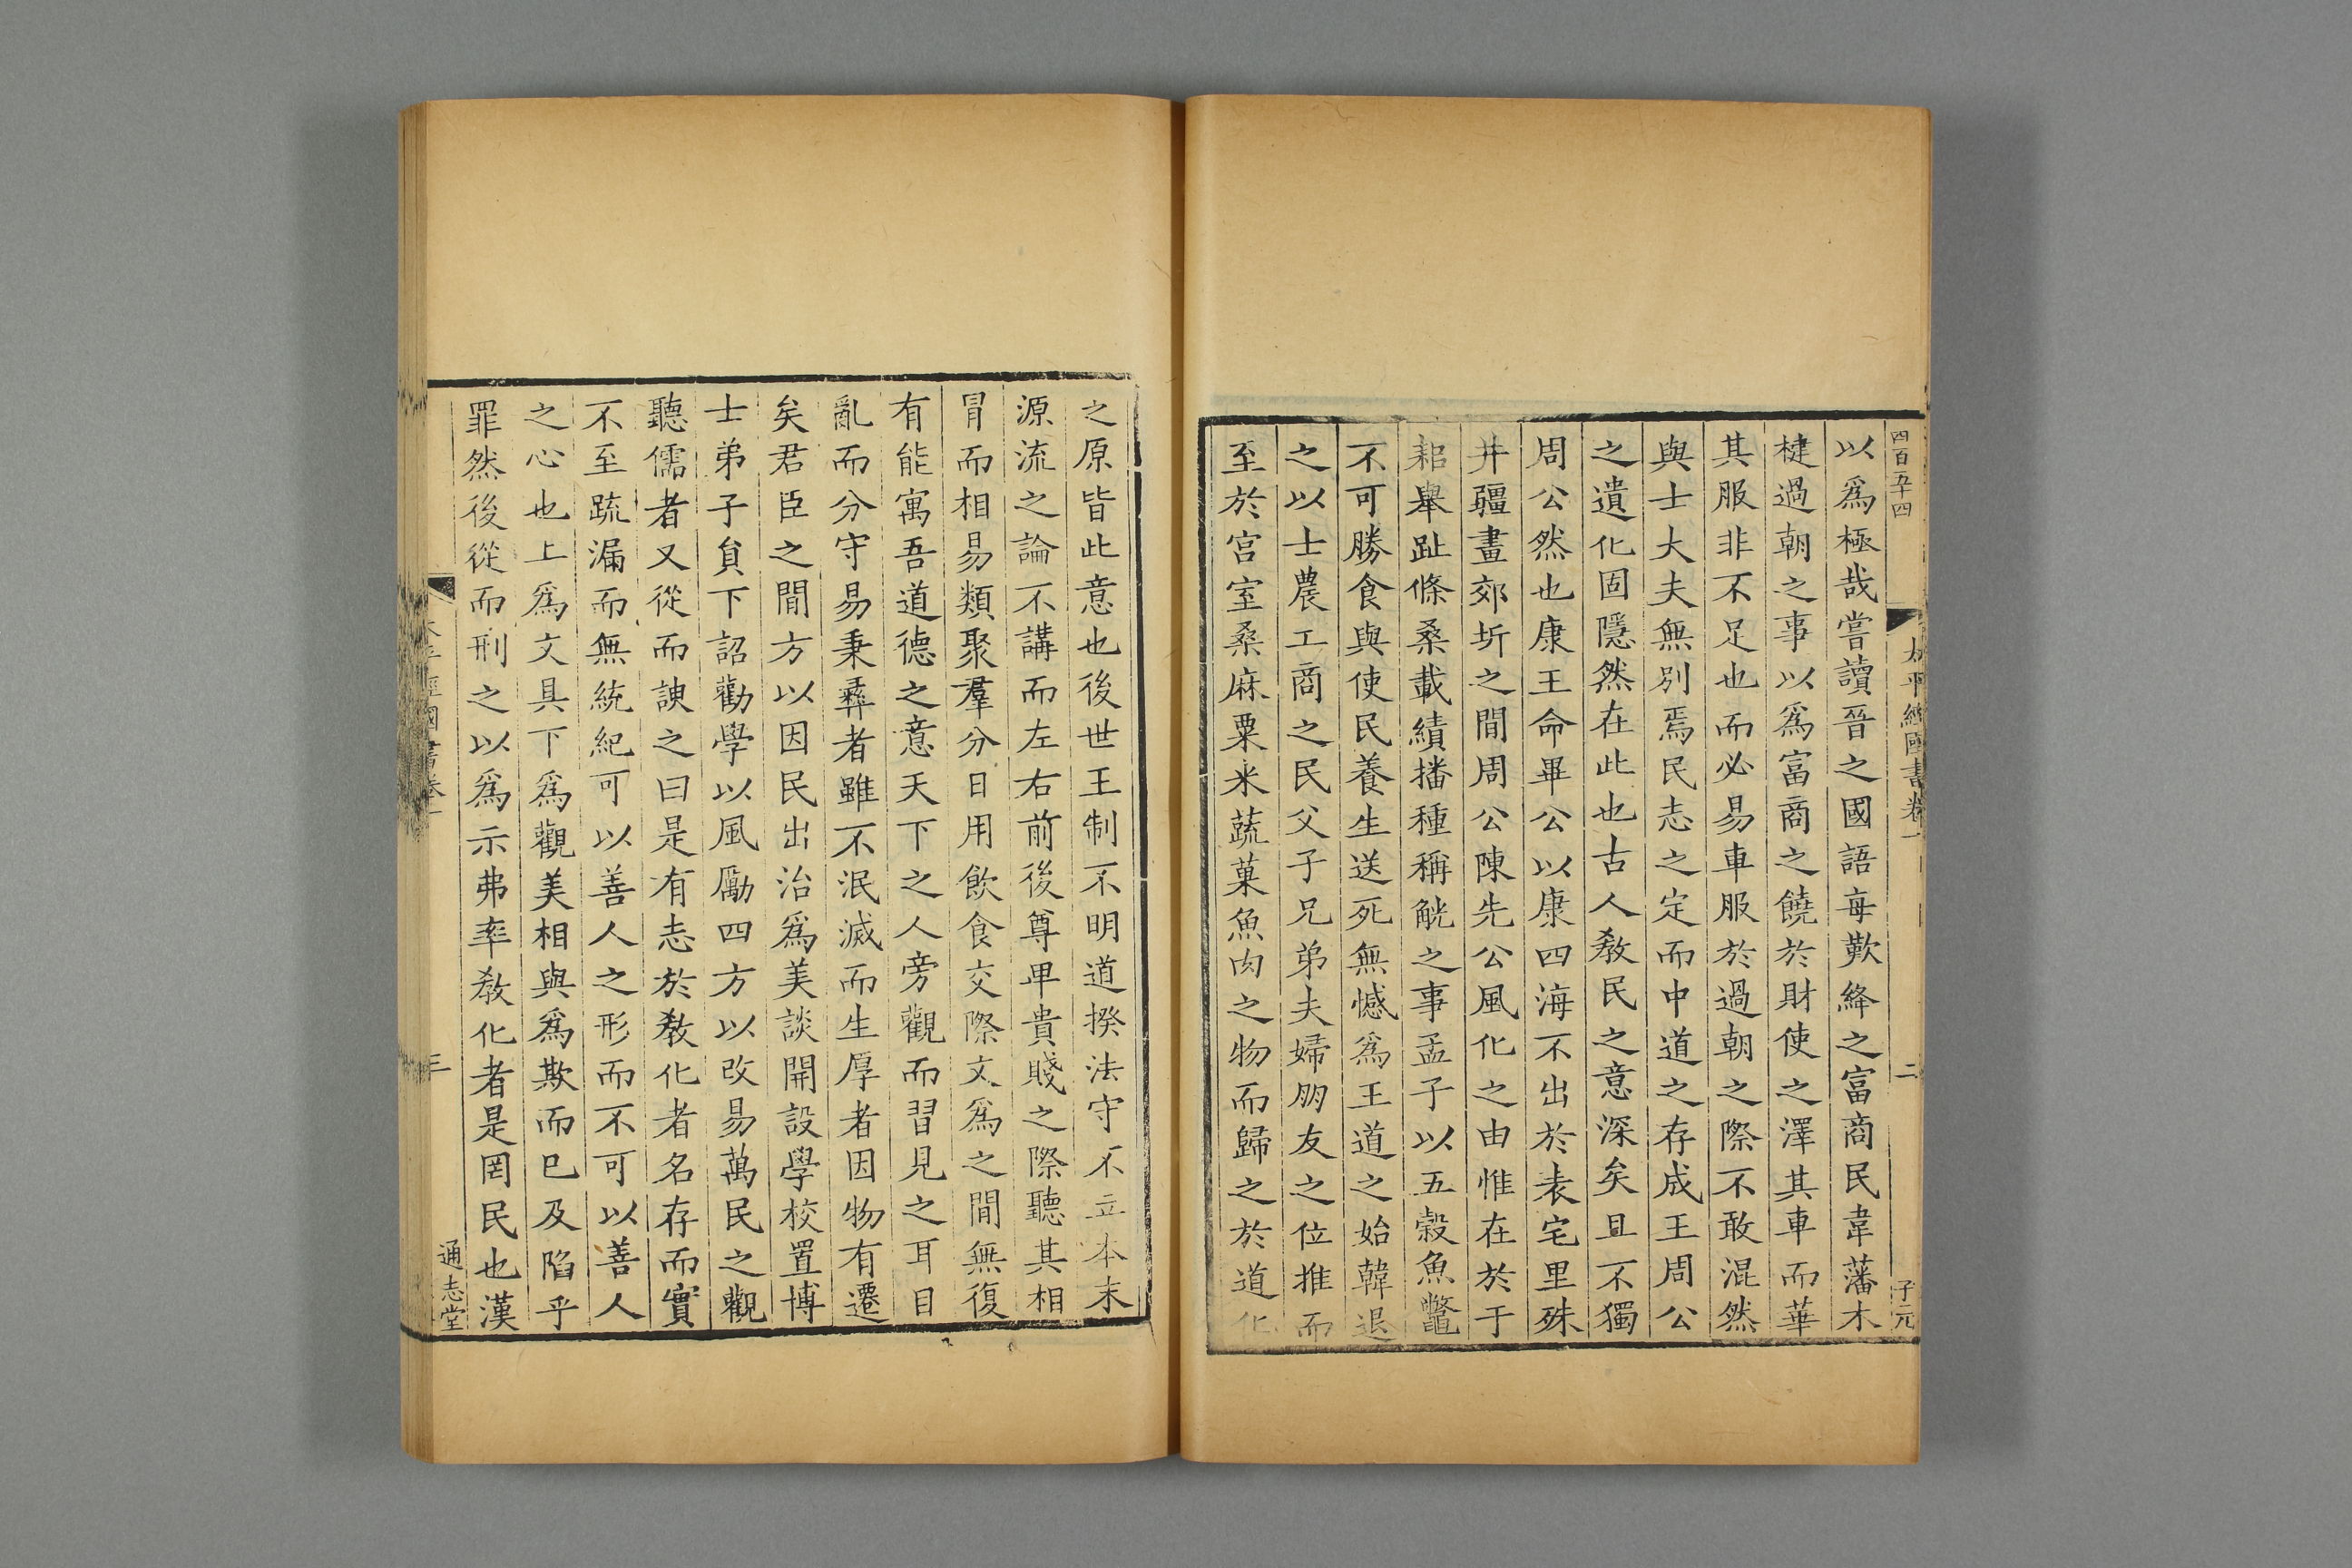 四百五十四
太平經國書卷一
二
子元
以爲極哉嘗讀晉之國語每歎絳之富商民韋藩木
楗過朝之事以爲富商之饒於財使之澤其車而華
其服非不足也而必易車服於過朝之際不敢混然
與士大夫無別焉民志之定而中道之存成王周公
之遺化固隱然在此也古人敎民之意深矣且不獨
周公然也康王命畢公以康四海不出於表宅里殊
井疆畫郊圻之間周公陳先公風化之由惟在於于
耜舉趾條桑載績播種稱觥之事孟子以五穀魚鼈
不可勝食與使民養生送死無憾爲王道之始韓退
之以士農工商之民父子兄弟夫婦朋友之位推而
至於宮室桑麻粟米蔬菓魚肉之物而歸之於道化
之原皆此意也後世王制不明道揆法守不立本末
源流之論不講而左右前後尊卑貴賤之際聽其相
冐而相易類聚羣分日用飲食交際文爲之間無復
有能寓吾道德之意天下之人旁觀而習見之耳目
亂而分守易秉彞者雖不泯滅而生厚者因物有遷
矣君臣之間方以因民出治爲美談開設學校置博
士弟子貟下詔勸學以風厲四方以改易萬民之觀
聽儒者又從而諛之曰是有志於敎化者名存而實
不至疏漏而無統紀可以善人之形而不可以善人
之心也上爲文具下爲觀美相與爲欺而已及陷乎
罪然後從而刑之以爲示弗率敎化者是罔民也漢
太平經國書卷一
三
通志堂